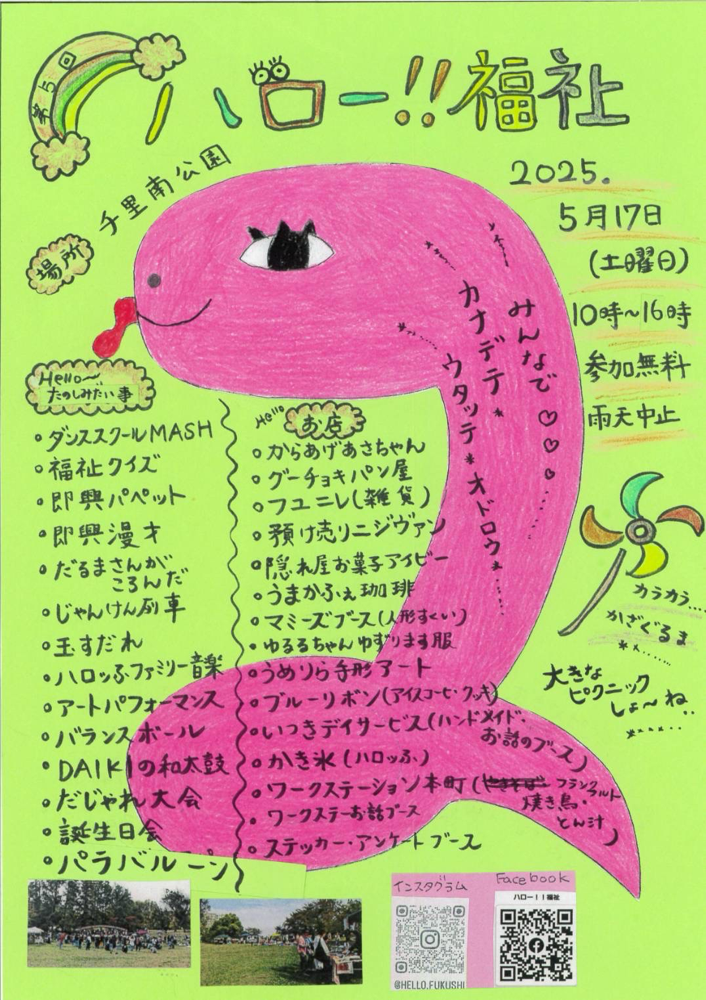 第5回
ハロー!!福祉
2025.
5月17日
(土曜日)
10時~16時
参加無料
雨天中止
場所
千里南公園
みんなで♡♡♡……
カナデテ*
ウタッテ*オドロウ*……
Hello~
たのしみたい事
・ダンススクールMASH
・福祉クイズ
・即興パペット
・即興漫才
・だるまさんが
ころんだ
・じゃんけん列車
・玉すだれ
・ハロッふファミリー音楽
・アートパフォーマンス
・バランスボール
・DAIKIの和太鼓
・だじゃれ大会
・誕生日会
・パラバルーン
Hello
お店
・からあげあさちゃん
・グーチョキパン屋
・フユニレ(雑貨)
・預け売りニジヴァン
・隠れ屋お菓子アイビー
・うまかふぇ珈琲
・マミーズブース(人形すくい)
・ゆるるちゃんゆずります服
・うめりら手形アート
・ブルーリボン(アイスコーヒ・クッキ)
・いつきデイサービス(ハンドメイド・
お話のブース)
・かき氷(ハロッふ)
・ワークステーション本町(フランクフルト
焼き鳥・
とん汁)
・ワークステーお話ブース
・ステッカー・アンケートブース
カラカラ…
かざぐるま
**……
大きな
ピクニック
しょ〜ね..
*……
インスタグラム
@HELLO.FUKUSHI
Facebook
ハロー!!福祉